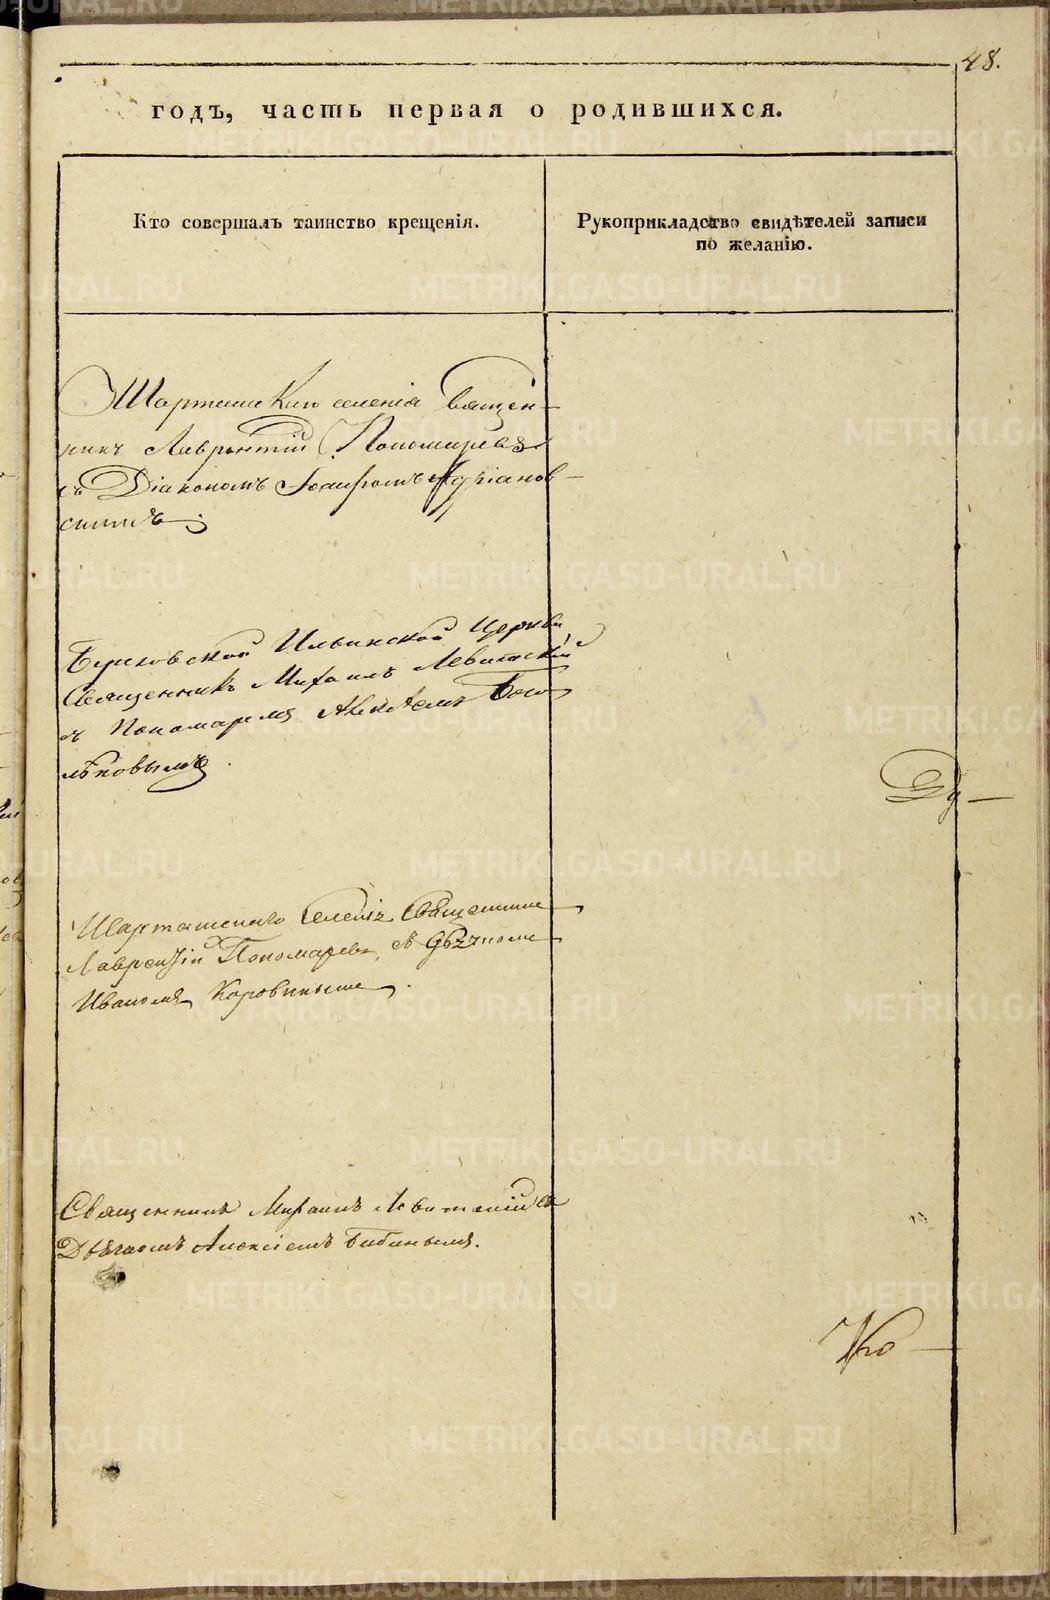 48.
годъ, часть первая о родившихся.
Кто совершалъ таинство крещенія.
Рукоприкладство свидѣтелей записи
по желанію.
Шарташскаго селенія Священ-
никъ Лаврентій Пономаревъ
съ Діакономъ Іоасафомъ Адріанов-
скимъ.
Березовской Ильинской Церкви
Священникъ Михаилъ Левитскій
съ Пономаремъ Алексѣемъ
Шарташскаго Селенія Священникъ
Лаврентій Пономаревъ, съ Дьячкомъ
Иваномъ Коровинымъ.
Священникъ Михаилъ Левитскій съ
Дьячкомъ Алексіемъ Бибинымъ.
METRIKI.GASO-URAL.RU